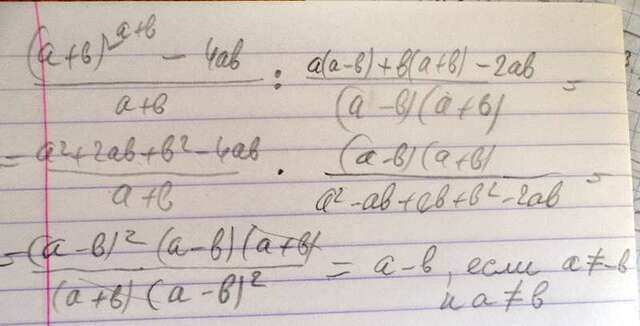 (a+b)^a+b - 4ab / a+b : a(a-b)+b(a+b)-2ab / (a-b)(a+b) =
= a²+2ab+b²-4ab / a+b · (a-b)(a+b) / a²-ab+ab+b²-2ab =
= (a-b)² (a-b)(a+b) / (a+b)(a-b)² = a-b, если a≠-b
и a≠b